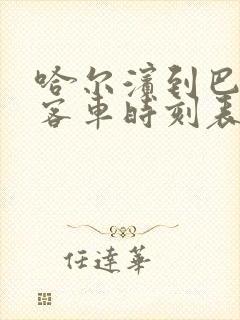 哈尔滨到巴
客车时刻表
任達華